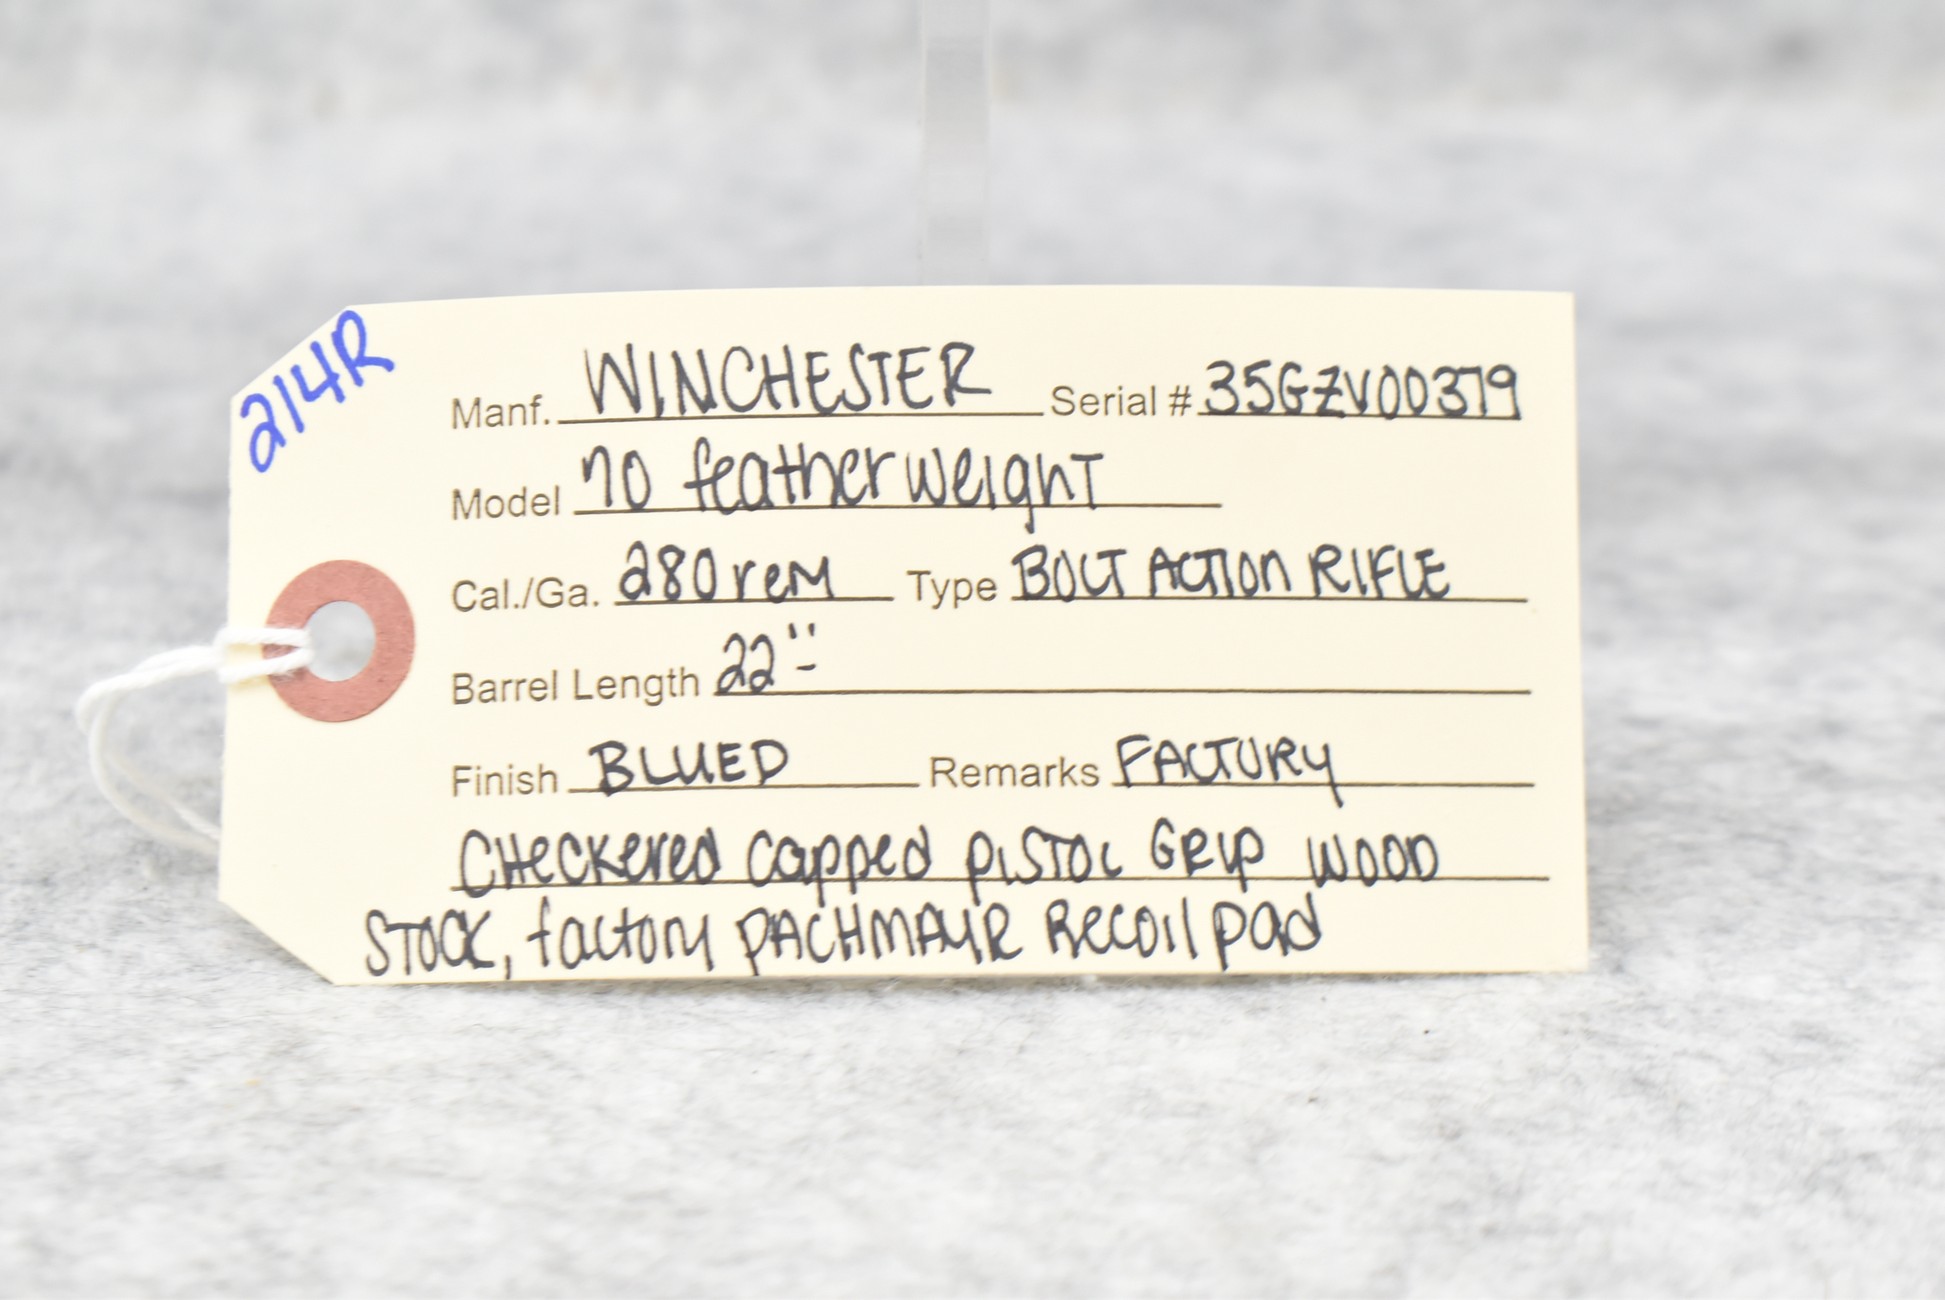 214R
Manf. WINCHESTER Serial # 35GZV00379
Model 70 featherweight
Cal./Ga. 280 rem Type BOLT ACTION RIFLE
Barrel Length 22"-
Finish BLUED Remarks FACTORY
CHECKERED Capped PISTOL GRIP WOOD
STOCK, factory PACHMAYR Recoil pad